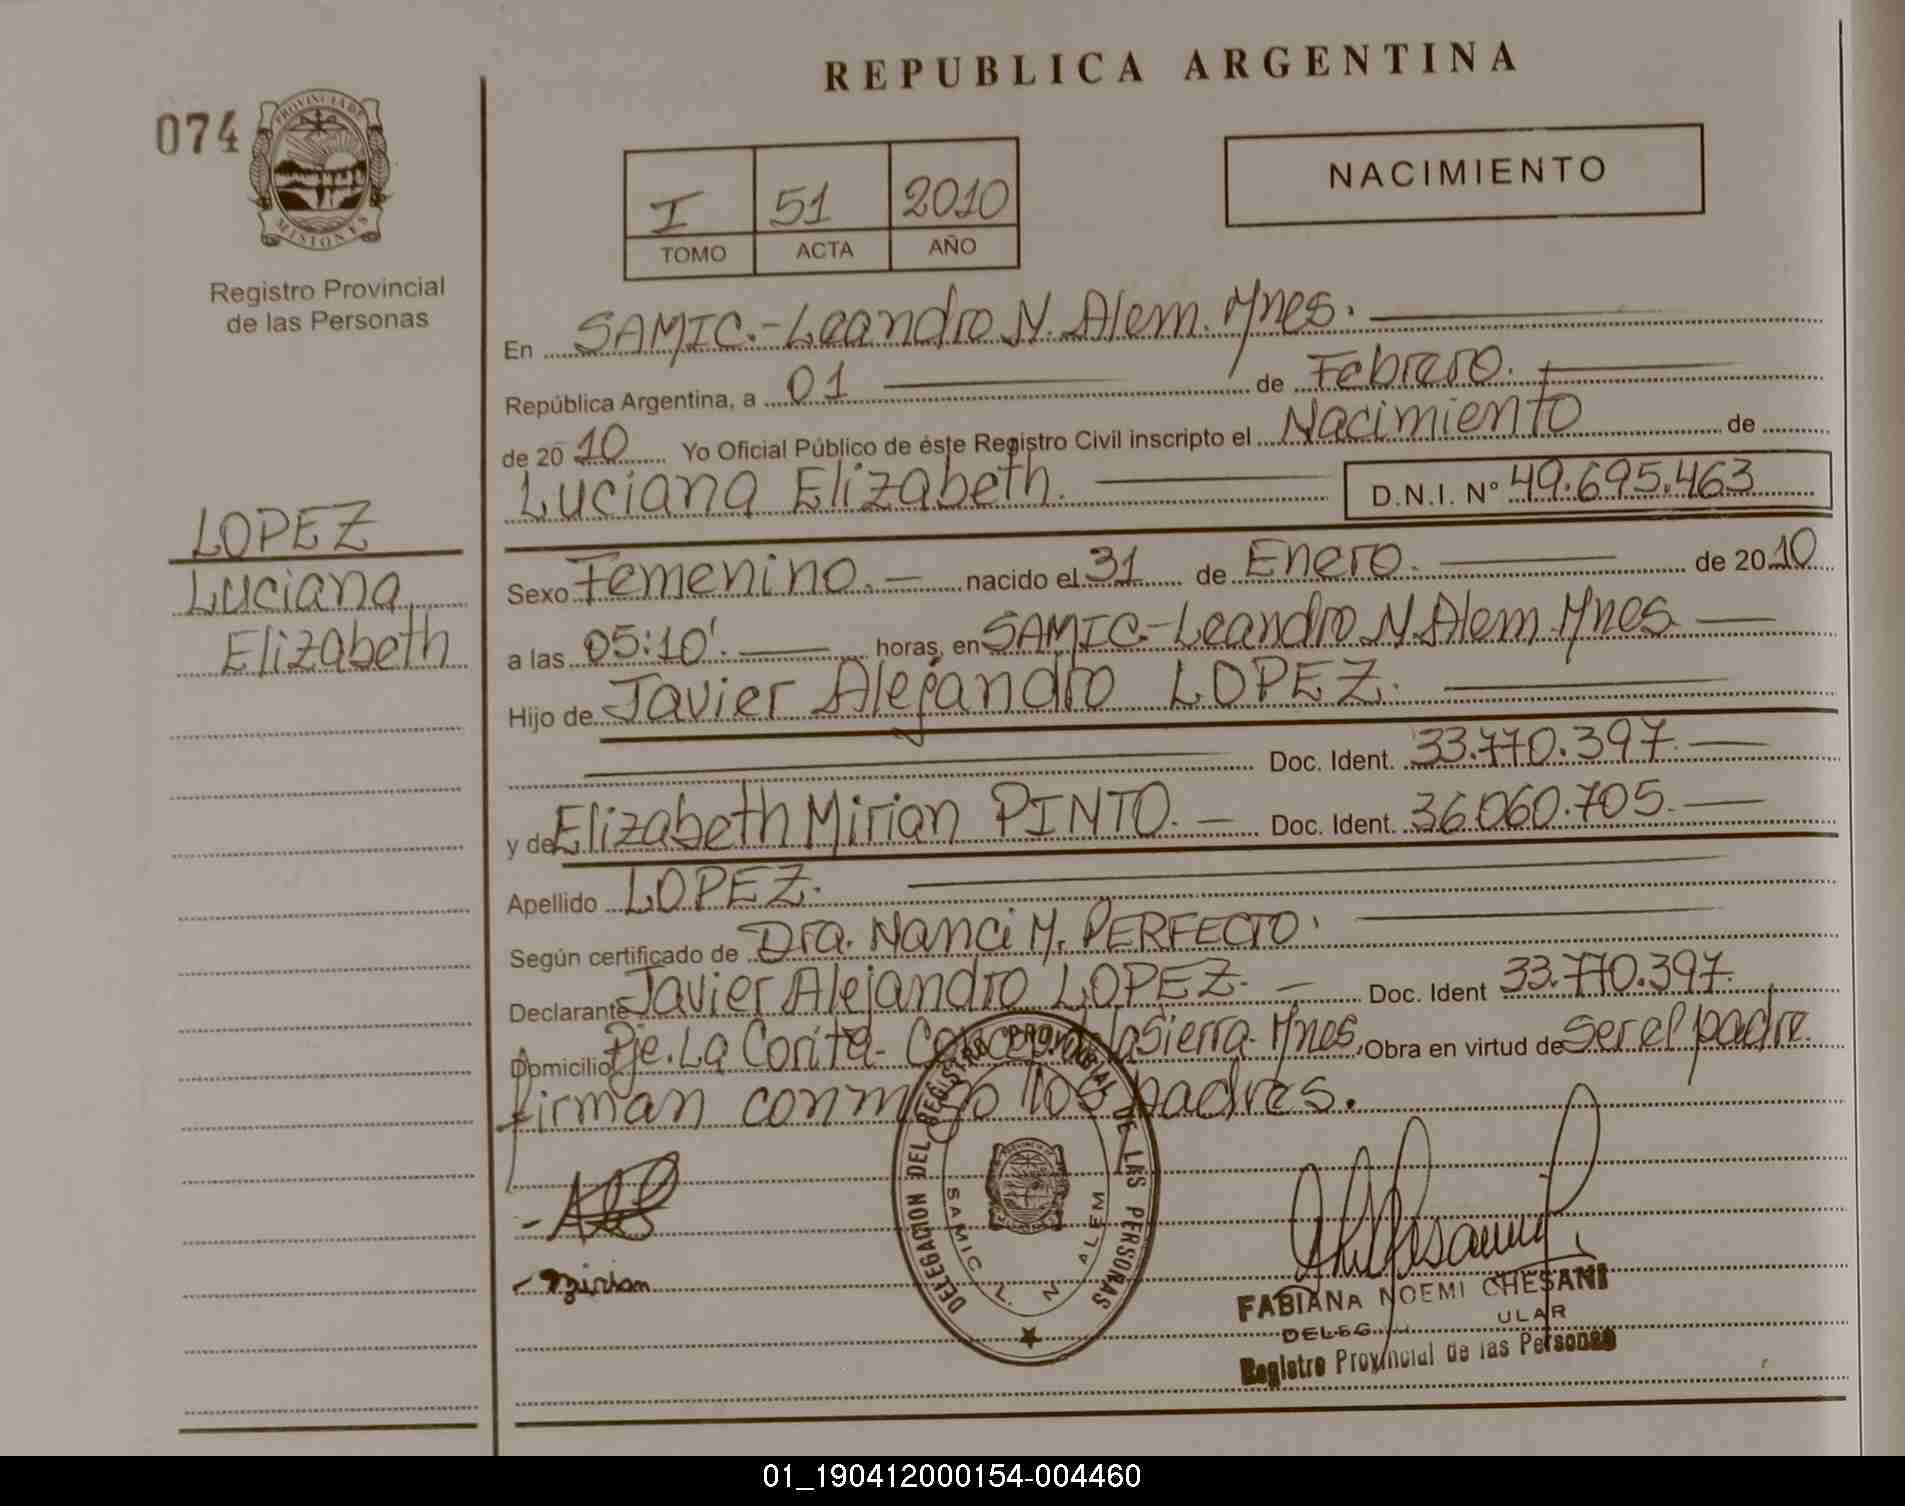 REPUBLICA ARGENTINA
074
PROVINCIA DE
MISIONES
Registro Provincial
de las Personas
I 51 2010
TOMO ACTA AÑO
NACIMIENTO
LOPEZ
Luciana
Elizabeth
En SAMIC.-Leandro N. Alem. Mnes.
República Argentina, a 01 de Febrero.
de 2010 Yo Oficial Público de éste Registro Civil inscripto el Nacimiento de
Luciana Elizabeth. D.N.I. Nº 49.695.463
Sexo Femenino.- nacido el 31 de Enero. de 2010
a las 05:10'. horas, en SAMIC.-Leandro N. Alem. Mnes.
Hijo de Javier Alejandro LOPEZ.
Doc. Ident. 33.770.397.
y de Elizabeth Mirian PINTO.- Doc. Ident. 36.060.705.
Apellido LOPEZ.
Según certificado de Dra. Nanci M. PERFECTO.
Declarante Javier Alejandro LOPEZ.- Doc. Ident 33.770.397.
Domicilio Pje. La Corita- de la Sierra. Mnes, Obra en virtud de Ser el padre.
firman conmigo los padres.
DELEGACION DEL REGISTRO PROVINCIAL DE LAS PERSONAS
SAMIC L. N. ALEM
- Mirian
FABIANA NOEMI CHESANI
Registro Provincial de las Personas
01_190412000154-004460